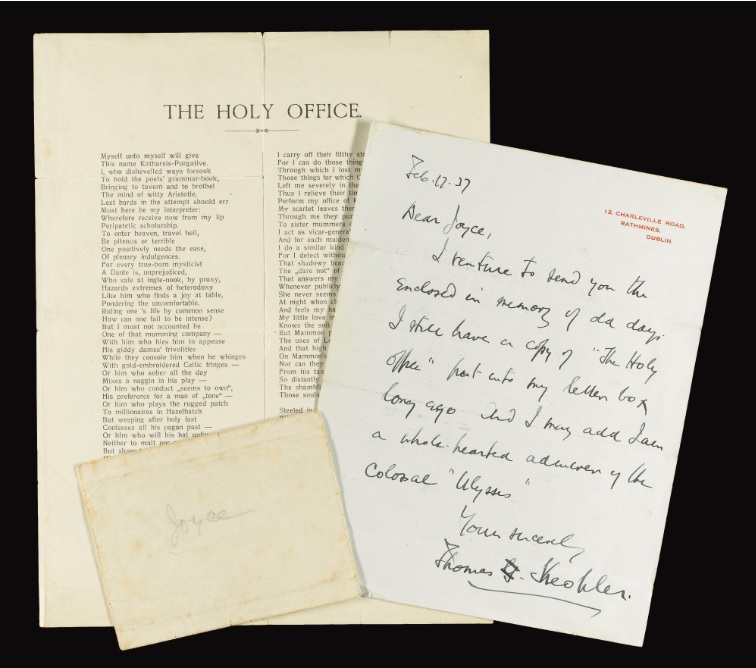 THE HOLY OFFICE.
Myself unto myself will give
This name Katharsis-Purgative.
I, who dishevelled ways forsook
To hold the poets' grammar-book,
Bringing to tavern and to brothel
The mind of witty Aristotle,
Lest bards in the attempt should err
Must here be my interpreter:
Wherefore receive now from my lip
Peripatetic scholarship.
To enter heaven, travel hell,
Be piteous or terrible
One positively needs the ease,
Of plenary indulgences.
For every true-born mysticist
A Dante is, unprejudiced,
Who safe at ingle-nook, by proxy,
Hazards extremes of heterodoxy
Like him who finds a joy at table,
Pondering the uncomfortable.
Ruling one's life by common sense
How can one fail to be intense?
But I must not accounted be
One of that mumming company —
With him who hies him to appease
His giddy dames' frivolities
While they console him when he whinges
With gold-embroidered Celtic fringes —
Or him who sober all the day
Mixes a naggin in his play —
Or him who conduct „seems to own",
His preference for a man of „tone" —
Or him who plays the rugged patch
To millionaires in Hazelhatch
But weeping after holy fast
Confesses all his pagan past —
Or him who will his hat
Neither to malt nor
But
I carry off their filthy
For I can do those
Through which I lost
Those things for which
Left me severely in the
Thus I relieve their
Perform my office of
My scarlet leaves
Through me they
To sister mummers
I act as
And for each maiden
I do a similar kind
For I detect without
That shadowy
The „dare not" of
That answers my
Whenever publicly
She never seems
At night when
And feels my
My little love
Knows the soft
But Mammon
The uses of
And that high
On Mammon's
Nor can they
From his
So distantly
The
Those
Steeled
Joyce
Feb. 12. 37
12, CHARLEVILLE ROAD,
RATHMINES,
DUBLIN.
Dear Joyce,
I venture to send you the
enclosed in memory of old days
I still have a copy of "The Holy
office" put into my letter box
long ago and I may add I am
a whole-hearted admirer of the
Colossal "Ulysses"
Yours sincerely,
Thomas G. Keohler.